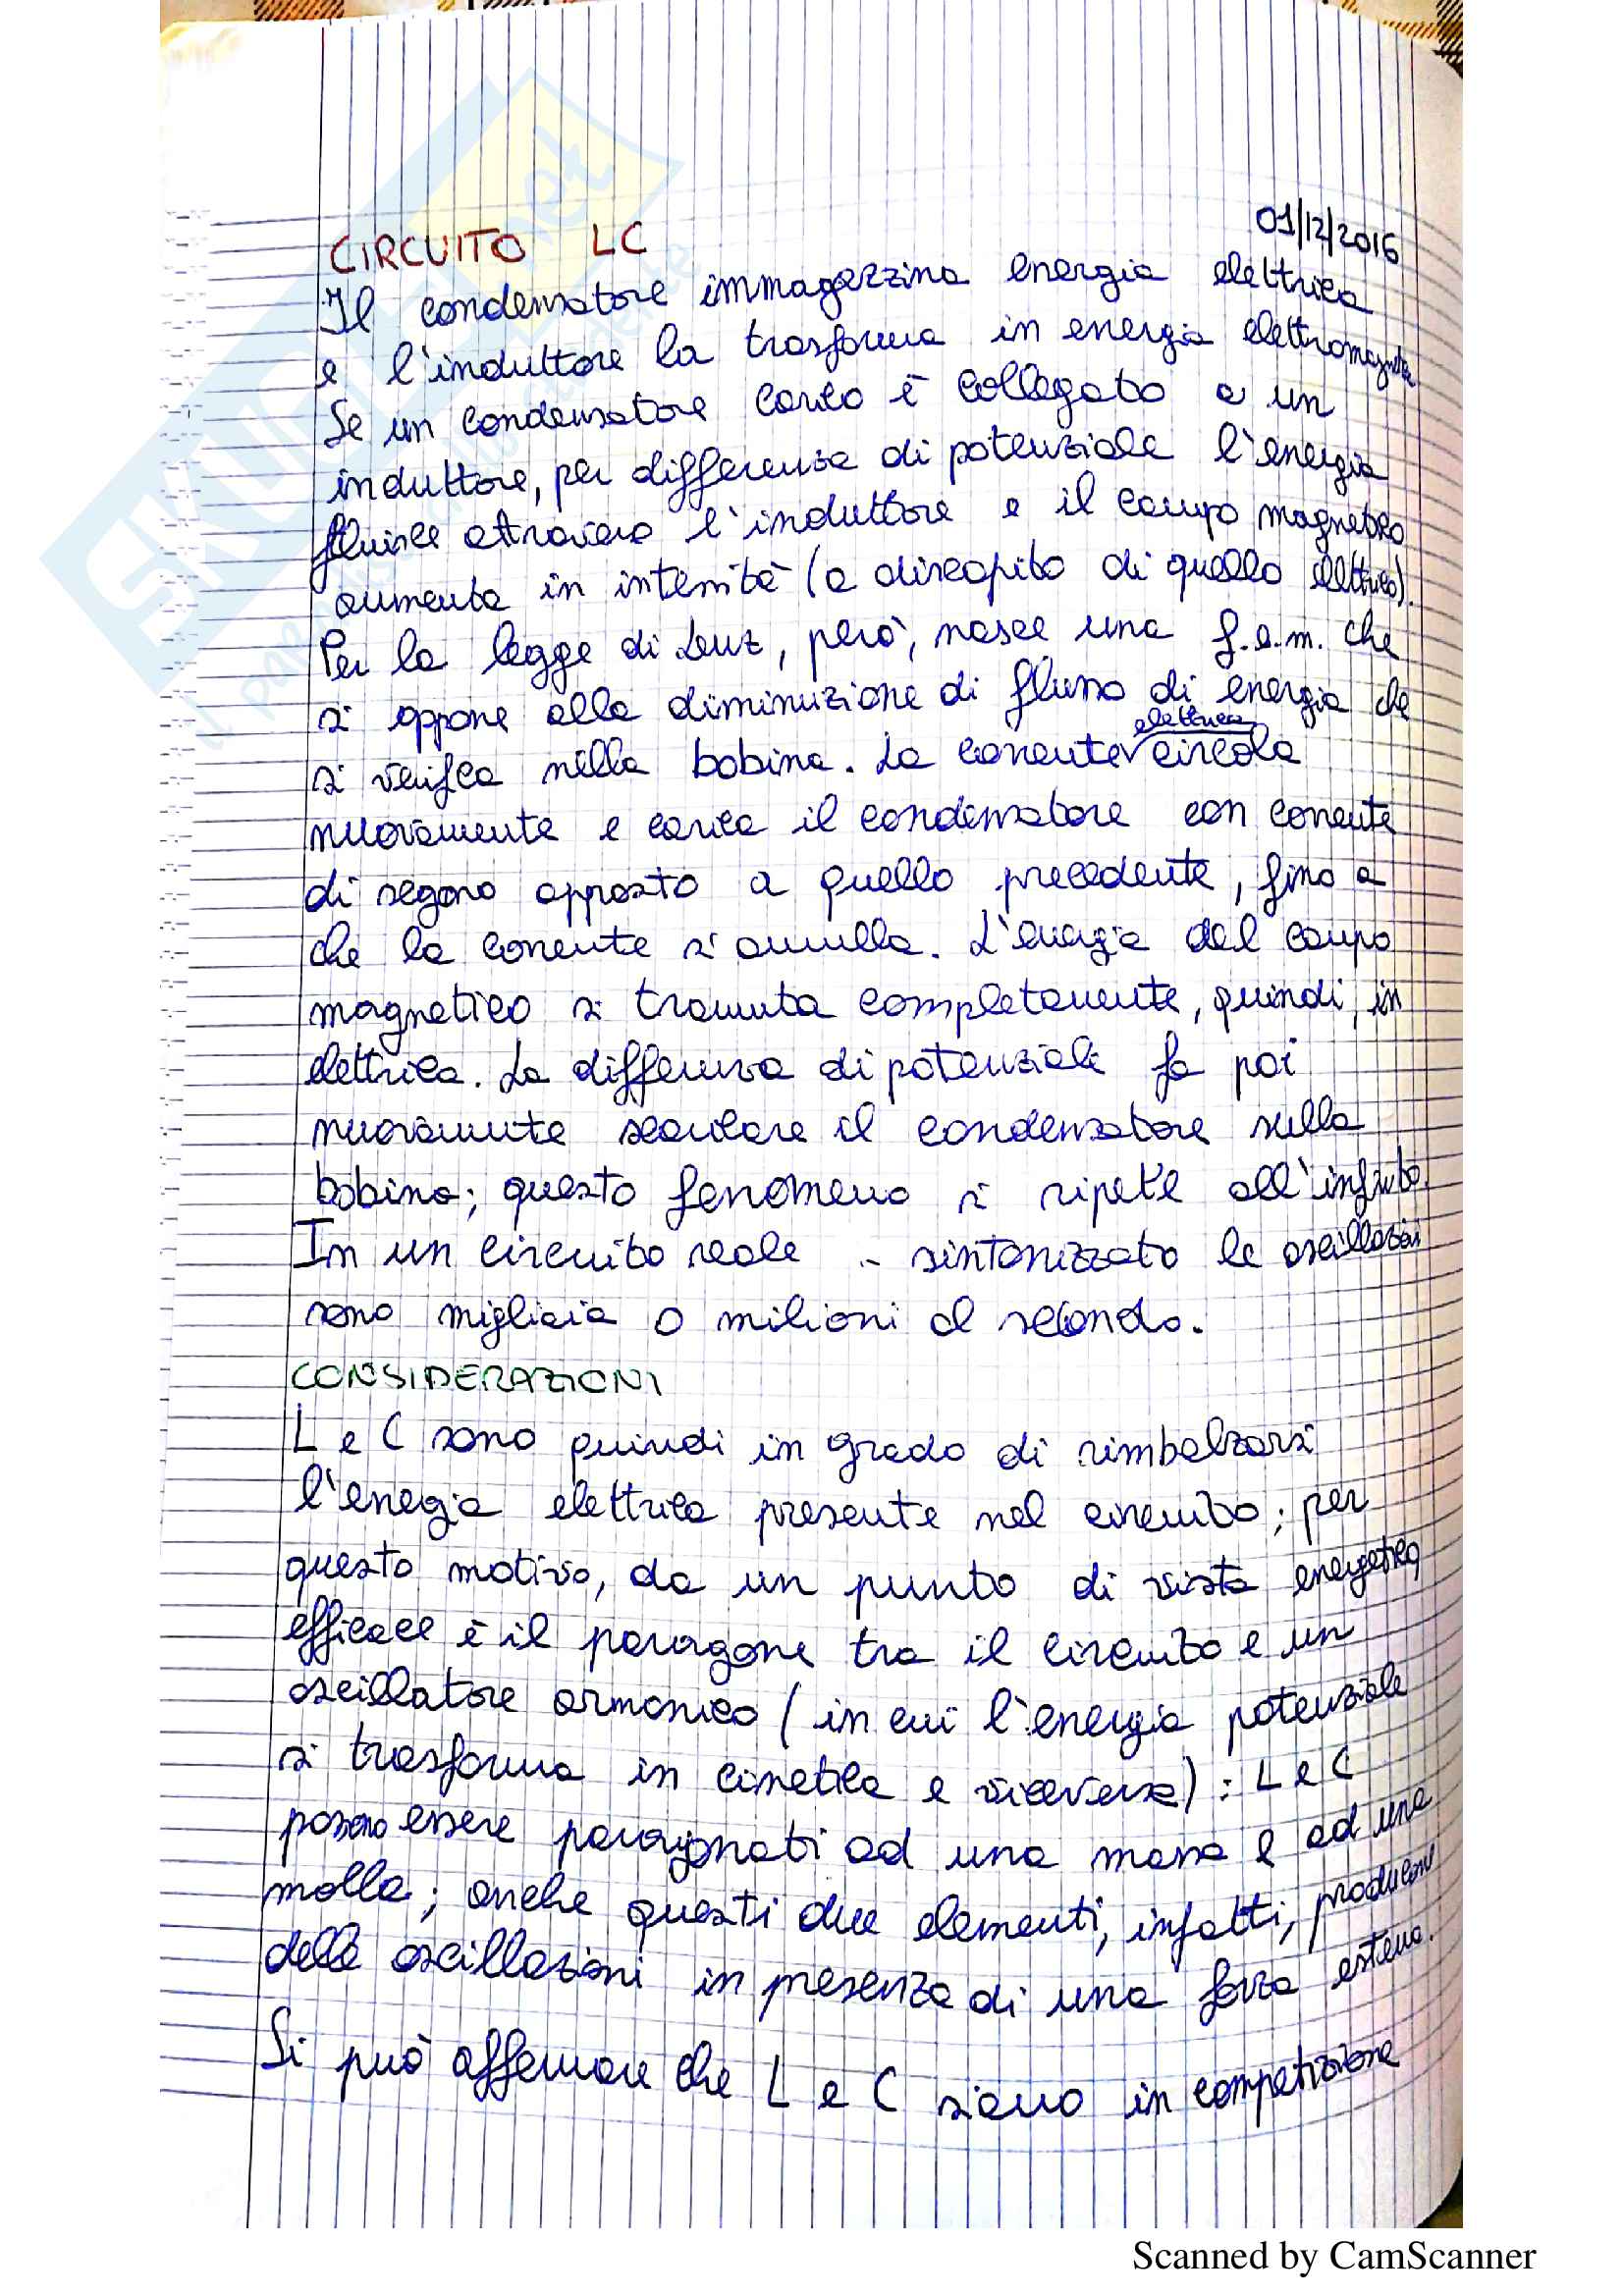 01/12/2016
CIRCUITO LC
Il condensatore immagazzina energia elettrica
e l'induttore la trasforma in energia elettromagnetica
Se un condensatore carico è collegato a un
induttore, per differenza di potenziale l'energia
fluisce attraverso l'induttore e il campo magnetico
aumenta in intensità (a discapito di quello elettrico).
Per la legge di Lenz, però, nasce una f.e.m. che
si oppone alla diminuzione di flusso di energia che
si verifica nella bobina. La corrente elettrica circola
nuovamente e carica il condensatore con corrente
di segono opposto a quello precedente, fino a
che la corrente si annulla. L'energia del campo
magnetico si tramuta completamente, quindi, in
elettrica. La differenza di potenziale fa poi
nuovamente scaricare il condensatore sulla
bobina; questo fenomeno si ripete all'infinito.
In un circuito reale - sintonizzato le oscillazioni
sono migliaia o milioni al secondo.
CONSIDERAZIONI
L e C sono quindi in grado di rimbalzarsi
l'energia elettrica presente nel circuito; per
questo motivo, da un punto di vista energetico,
efficace è il paragone tra il circuito e un
oscillatore armonico (in cui l'energia potenziale
si trasforma in cinetica e viceversa): L e C
possono essere paragonati ad una massa e ad una
molla; anche questi due elementi, infatti, producono
delle oscillazioni in presenza di una forza esterna.
Si può affermare che L e C siano in competizione
Scanned by CamScanner